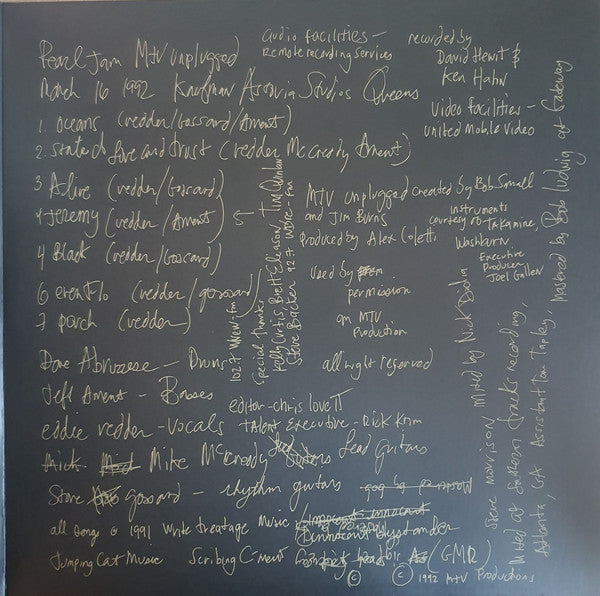 Pearl Jam MTV unplugged
March 16 1992 Kaufman Astoria Studios Queens
1. oceans (vedder/Gossard/Ament)
2. state of love and trust (vedder McCready Ament)
3 Alive (vedder/Gossard)
4 Jeremy (vedder/Ament)
4 Black (vedder/Gossard)
6 evenflo (vedder/gossard)
7 porch (vedder)
Dave Abruzzese - Drums
Jeff Ament - Basses
eddie vedder - vocals
Mick Mike McCready Lead guitars
Steve gossard - rhythm guitars
all songs © 1991 write treatage Music / innocent bystander
Jumping Cat Music Scribing C-ment (GMR)
audio facilities -
Remote recording services
recorded by
David Hewitt &
Ken Hahn
Video facilities -
united Mobile video
MTV unplugged created by Bob Small
and Jim Burns
Produced by Alex Coletti
instruments
courtesy of Takamine,
Washburn
Executive
Producer
Joel Gallen
Used by
permission
an MTV
Production
all right reserved
editor - chris lovett
Talent Executive - Rick Krim
102.7 WNEW-FM
special thanks
Kelly Curtis Brett Eliason Tim Quinlan
Steve Backer 92.7 WDRE-FM
Steve Morrison Mixed by Nick DiDia
Mixed at Southern Tracks recording,
Atlanta, GA Assistant Tom Tapley, Mastered by Bob Ludwig at Gateway
© © 1992 MTV Productions